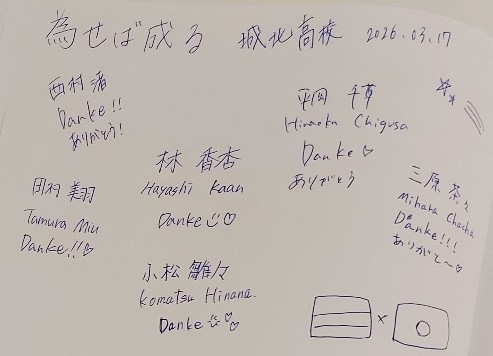 為せば成る 城北高校 2026.03.17
西村 渚
Danke!!
ありがとう!
平岡 千草
Hiraoka Chigusa
Danke♡
ありがとう
林 香杏
Hayashi Kaan
Danke☺♡
三原 茶々
Mihara Chacha
Danke!!!
ありがと〜♡
田村 美羽
Tamura Miu
Danke!!♡
小松 雛々
Komatsu Hinana.
Danke☺♡♡
×